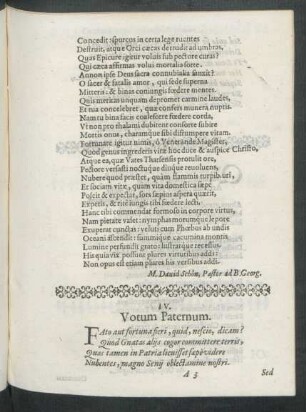 Concedit: spurcos in certa lege ruentes
Destruit, atque Orci cæcas detrudit ad umbras,
Quas Epicure igitur voluis sub pectore curas?
Qui cæca affirmas volui mortalia sorte.
Annon ipse Deus sacra connubialia sanxit?
O sacer & fatalis amor, qui sede superna
Mitteris: & binas coniungis foedere mentes.
Quis meritas unquam depromet carmine laudes,
Et tua concelebret, quæ confers munera nuptis.
Nam tu bina facis coalescere foedera corda,
Vi non pro thalami dubitent consorte subire
Mortis onus, charumque sibi dissumpere vitam.
Fortunate igitur nimis, ô Venerande Magister,
Quod genus ingrederis vitæ hoc duce & auspice Christo,
Atque ea, quæ Vates Thasensis protulit ore,
Pectore versasti noctuque diuque reuoluens,
Nubere quod præstet, quàm flammis turpibus uri,
Et sociam vitæ, quam vita domestica sæpè
Poscit & expectat, sors sæpius aspera quærit,
Expetis, & tiei iungis tibi foedere lecti.
Hanc tibi commendat formosi in corpore virtus,
Nam pietate valet: nymphas morumque lepore
Exuperat cunctas: veluti cum Phœbus ab undis
Oceani ascendit: summaque cacumina montis
Lumine perfundit grato: lustratque recessus.
His quia vix possunt plures virtutibus addi:
Non opus est etiam plures his versibus addi.
M. David Schön, Pastor ad B. Georg.
IV.
Votum Paternum.
FAto aut fortuna fieri, quid, nescio, dicam?
Quod Gnatos alijs cogor committere terris,
Quas tamen in Patria licuisset sapè videre
Nubentes, magno Senij oblectamine nostri.
A 3 Sed